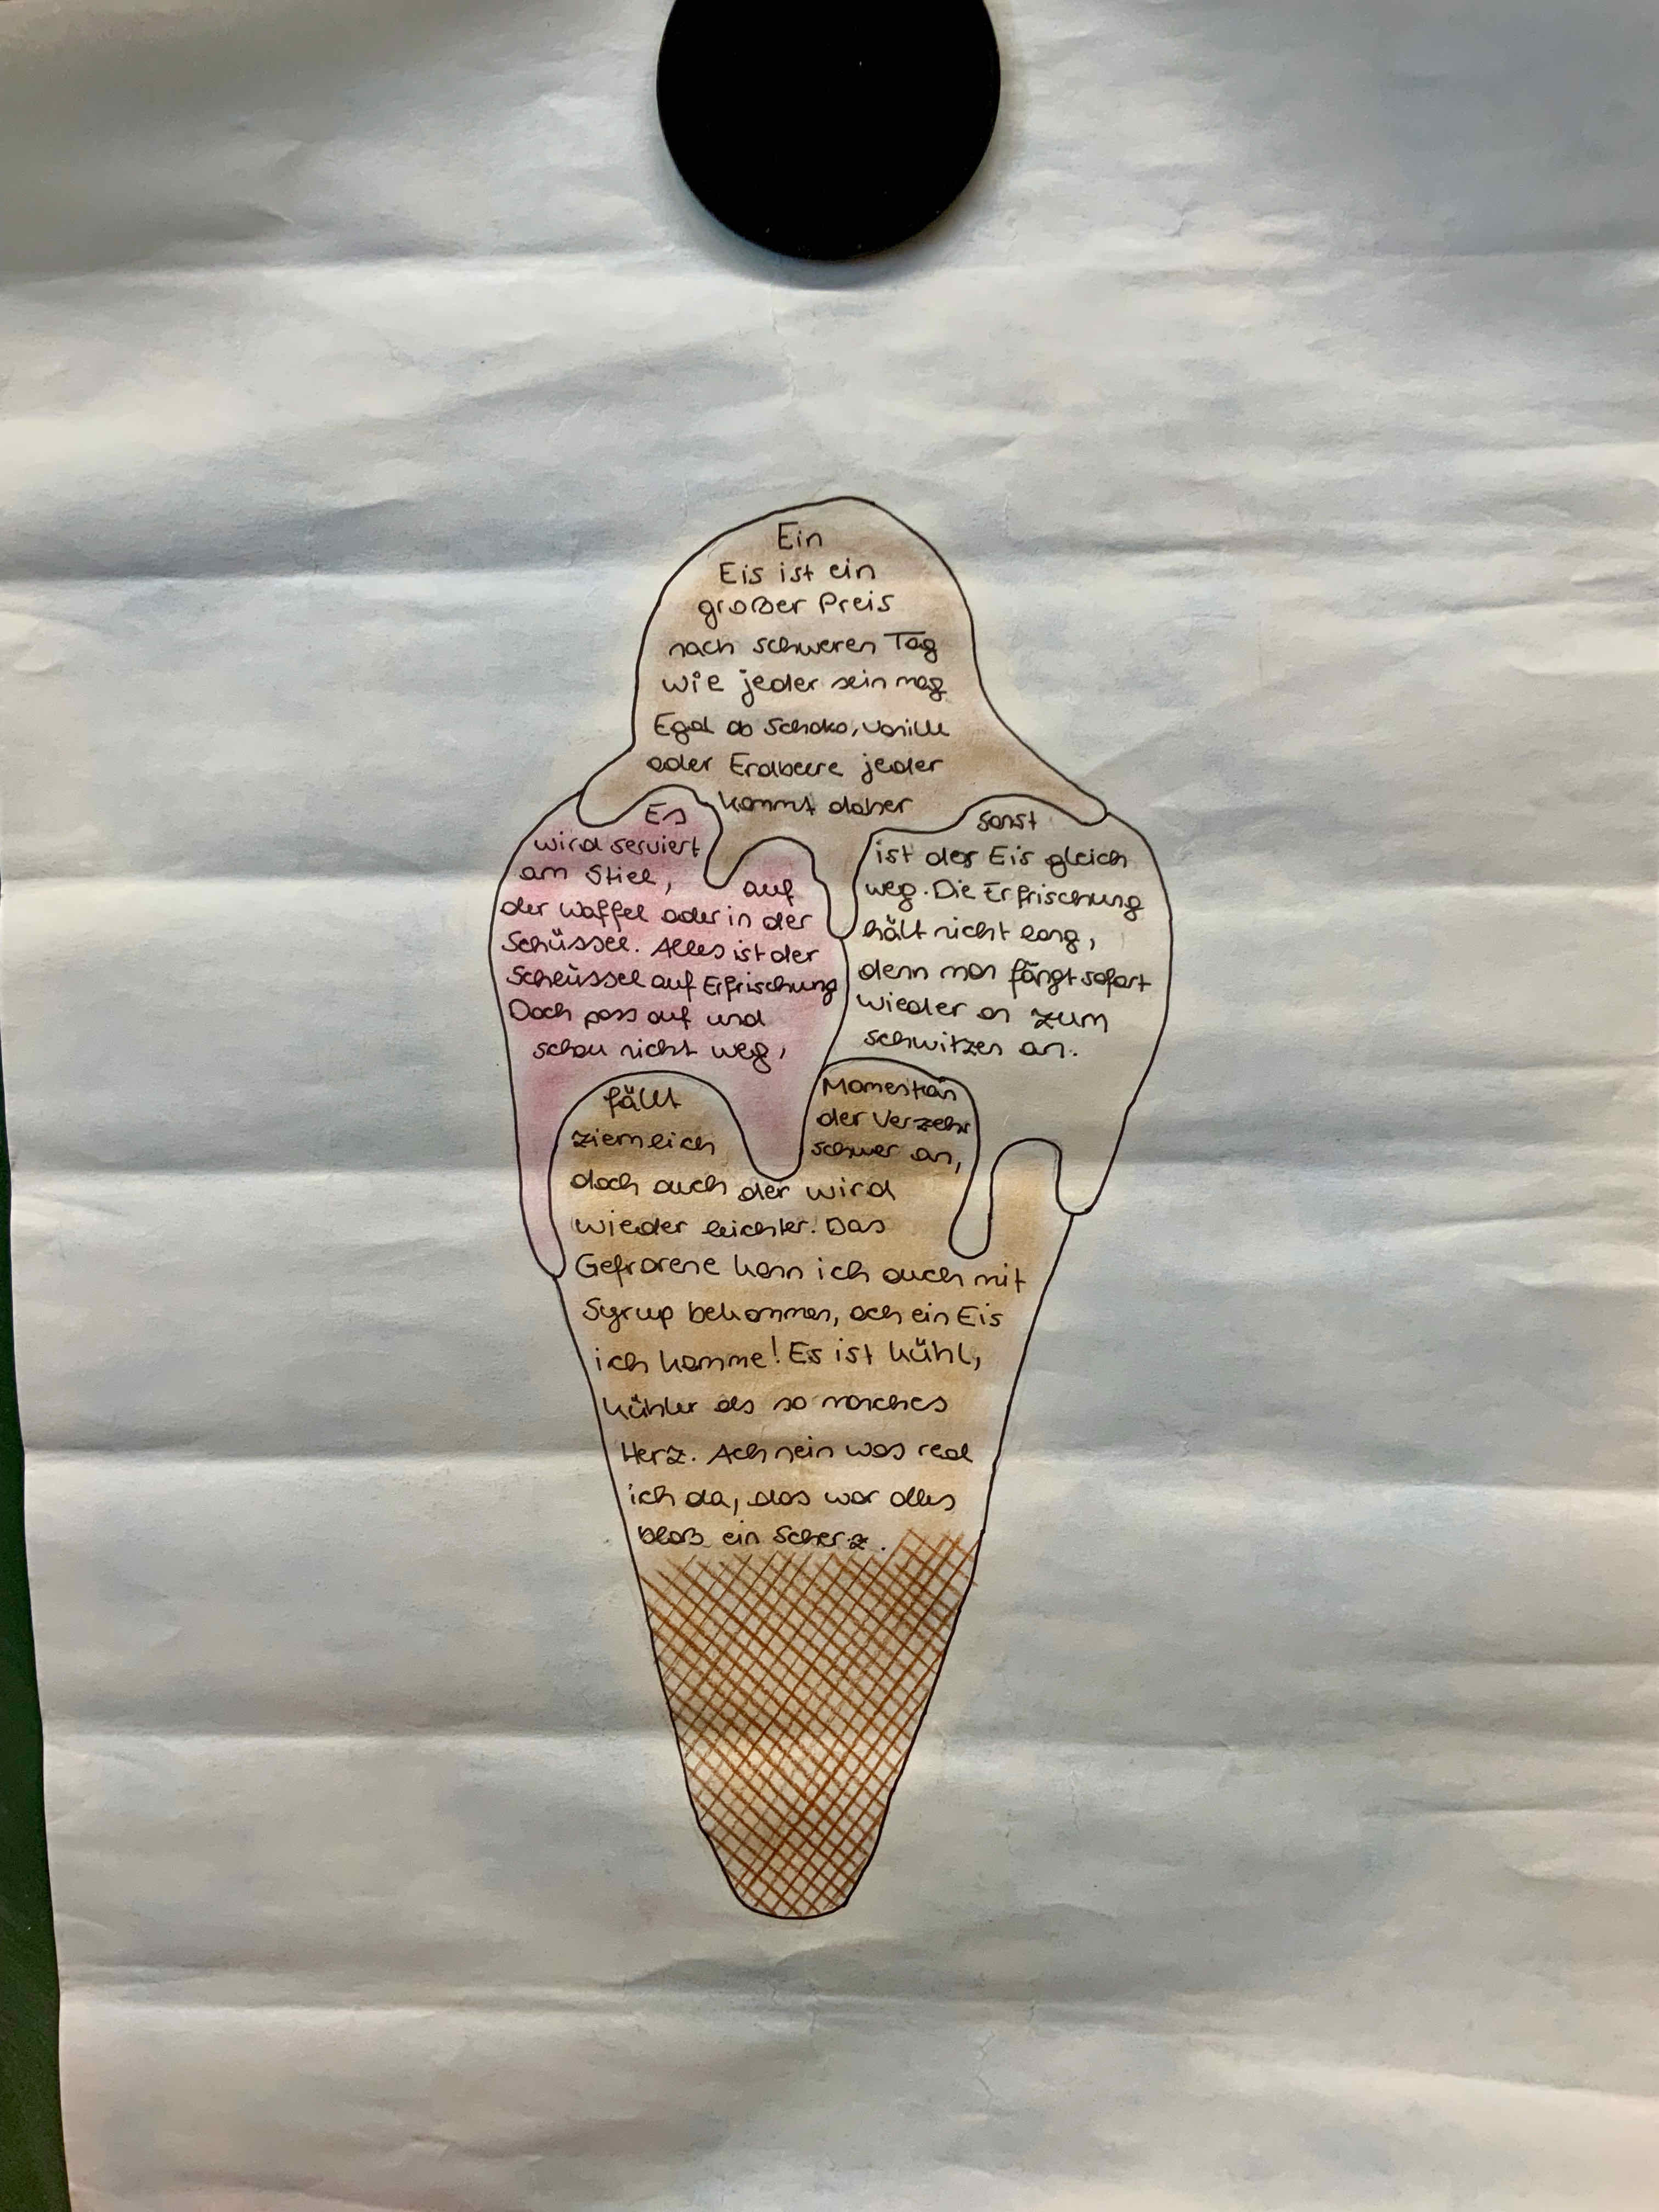 Ein
Eis ist ein
großer Preis
nach schweren Tag
wie jeder sein mag
Egal ob Schoko, Vanille
oder Erdbeere jeder
kommt daher
Es
wird serviert
am Stiel, auf
der Waffel oder in der
Schüssel. Alles ist der
Schlüssel auf Erfrischung
Doch pass auf und
schau nicht weg,
sonst
ist das Eis gleich
weg. Die Erfrischung
hält nicht lang,
denn man fängt sofort
wieder an zum
schwitzen an.
Momentan
der Verzehr
schwer an,
fällt
ziemlich
doch auch der wird
wieder leichter. Das
Gefrorene kann ich auch mit
Syrup bekommen, ach ein Eis
ich komme! Es ist kühl,
kühler als so manches
Herz. Ach nein was red
ich da, das war alles
bloß ein Scherz.